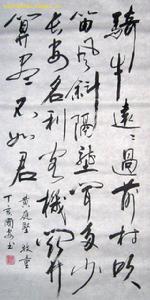 騎牛遠遠過前村吹
笛風斜隔壟聞多少
長安名利客機關
算盡不如君
黄庭堅 牧童
丁亥國安书